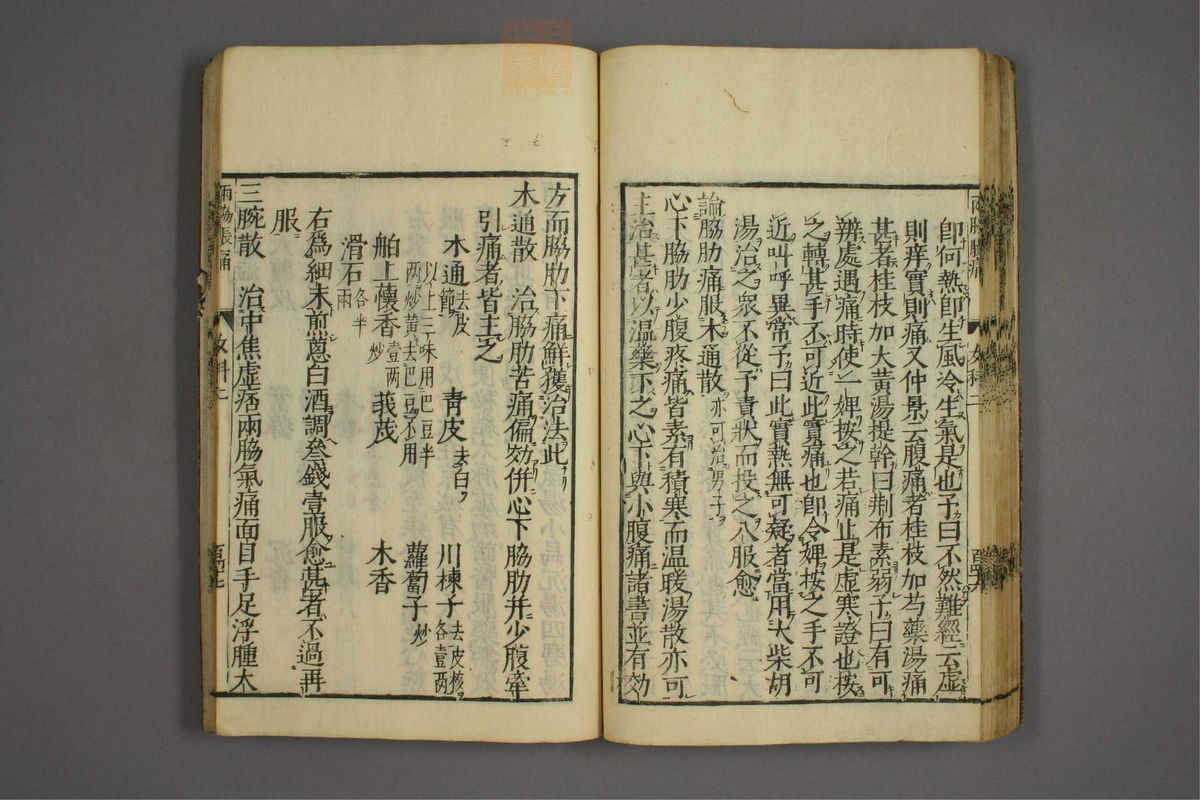 卽何熱卽生風冷生氣是也子曰不然難經云虛
則痒實則痛又仲景云腹痛者桂枝加芍藥湯痛
甚者桂枝加大黃湯提幹曰荆布素弱子曰有可
辨處遇痛時使一婢按之若痛止是虛寒證也按
之轉甚手不可近此實痛也卽令婢按之手不可
近叫呼異常予曰此實熱無可疑者當用大柴胡
湯治之衆不從予責狀而投之八服愈
論脇肋痛服木通散 亦可治男子
心下脇肋少腹疼痛皆素有積寒而温暖湯散亦可
主治甚者以温藥下之心下與小腹痛諸書並有効
方而脇肋下痛鮮獲治法此
木通散 治脇肋苦痛偏効併心下脇肋并少腹牽
引痛者皆主之
木通去皮節 青皮去白 川楝子去皮核各壹兩
以上三味用巴豆半兩炒黃去巴豆不用 蘿蔔子炒
舶上懷香壹兩炒 莪茂 木香
滑石各半兩
右爲細末煎蔥白酒調叄錢壹服愈甚者不過再
服
三脘散 治中焦虛痞兩脇氣痛面目手足浮腫大
兩脇脹痛
女科二